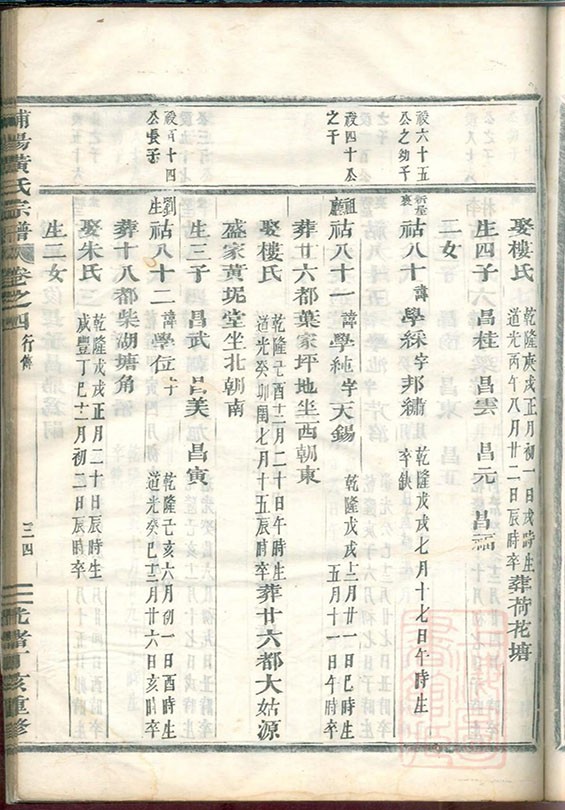 娶樓氏 乾隆庚戌正月初一日戌時生 道光丙午八月廿二日辰時卒 葬荷花塘
生四子 昌桂 昌雲 昌元 昌福
二女
祿六十五公之幼子
祜八十 諱學綵字邦繡 乾隆戊戌七月十七日午時生 卒缺
祿四十公之子
祖廳
祜八十一 諱學純字天錫 乾隆戊戌十二月廿一日巳時生 五月十一日午時卒
葬廿六都葉家坪地坐西朝東
娶樓氏 乾隆己酉十二月二十日午時生 道光癸卯閏七月十五辰時卒 葬廿六都大姑源
盛家萬坭堂坐北朝南
生三子 昌武 昌美 昌寅
祿百十四公長子
劉生
祜八十二 諱學位字 乾隆己亥六月初一日酉時生 道光癸巳十二月廿六日亥時卒
葬十八都柴湖塘角
娶朱氏 乾隆戊戌正月二十日辰時生 咸豐丁巳十二月初二日辰時卒
生二女
浦陽黃氏宗譜 卷之四 行傳 三四 光緒丁亥重修